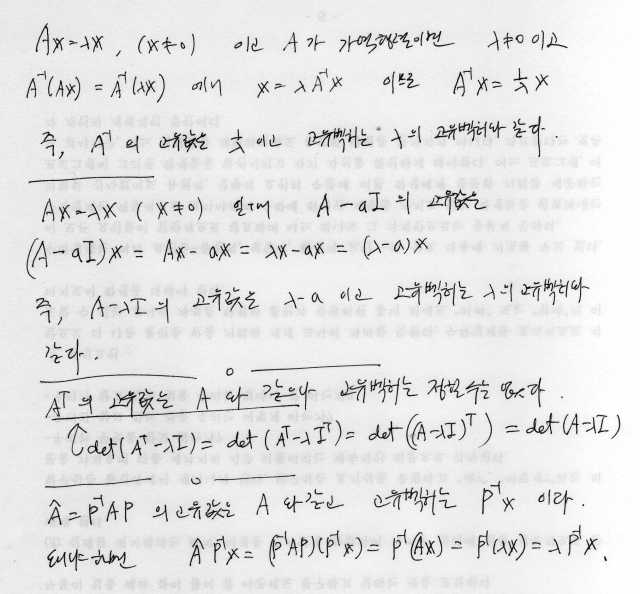 Ax=λx, (x≠0) 이고 A가 가역행렬이면 λ≠0 이고
A⁻¹(Ax) = A⁻¹(λx) 에서 x = λA⁻¹x 이므로 A⁻¹x = 1/λ x
즉, A⁻¹의 고유값은 1/λ 이고 고유벡터는 λ의 고유벡터와 같다.
Ax=λx (x≠0) 일때 A-aI 의 고유값은
(A-aI)x = Ax-ax = λx-ax = (λ-a)x
즉, A-λI의 고유값은 λ-a 이고 고유벡터는 λ의 고유벡터와
같다.
Aᵀ의 고유값은 A와 같으나 고유벡터는 정할 수는 없다.
det(Aᵀ-λI) = det(Aᵀ-λIᵀ) = det((A-λI)ᵀ) = det(A-λI)
Â = P⁻¹AP 의 고유값은 A와 같고 고유벡터는 P⁻¹x 이다.
왜냐하면 ÂP⁻¹x = (P⁻¹AP)(P⁻¹x) = P⁻¹(Ax) = P⁻¹(λx) = λP⁻¹x.